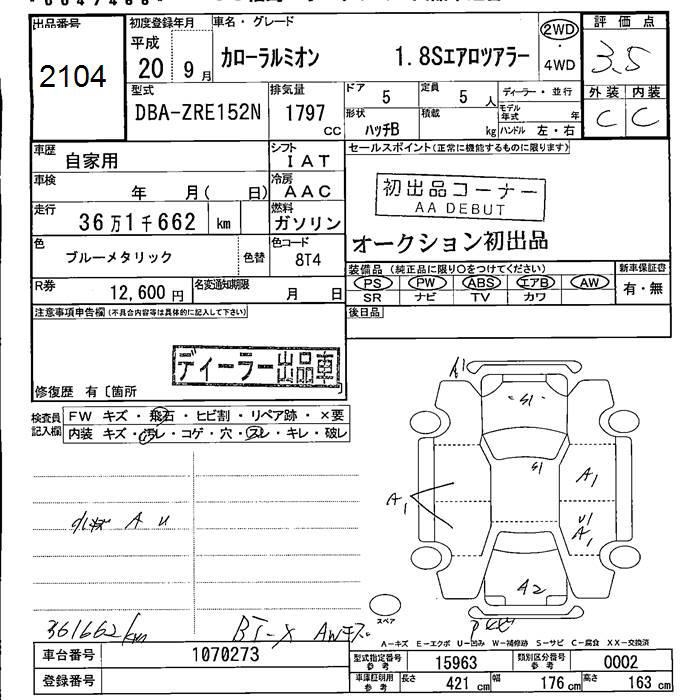 出品番号
2104
初度登録年月
平成
20 9月
車名・グレード
カローラルミオン 1.8Sエアロツアラー
2WD
・
4WD
評価点
3.5
外装 内装
C C
型式
DBA-ZRE152N
排気量
1797
CC
ドア
5
定員
5 人
ディーラー・並行
モデル年式 年
形状
ハッチB
積載
kg
ハンドル 左・右
車歴
自家用
シフト
IAT
車検
年 月( 日)
冷房
AAC
走行
36万1千662 km
燃料
ガソリン
色
ブルーメタリック
色替
色コード
8T4
R券
12,600 円
名変通知期限
月 日
セールスポイント(正常に機能するものに限ります)
初出品コーナー
AA DEBUT
オークション初出品
装備品 (純正品に限り○をつけてください)
新車保証書
PS PW ABS エアB AW
SR ナビ TV カワ
有・無
注意事項申告欄(不具合内容等は具体的に記入して下さい)
後日品
ディーラー出品車
修復歴 有〔箇所
検査員記入欄
FW キズ・飛石・ヒビ割・リペア跡・×要
内装 キズ・汚レ・コゲ・穴・スレ・キレ・破レ
A1
S1
S1
A1
A1
U1
A1
A2
A U
スペア
361662km
BT-X AWキズ
A-キズ E-エクボ U-凹み W-補修跡 S-サビ C-腐食 XX-交換済
車台番号
1070273
型式指定番号
参考
15963
類別区分番号
参考
0002
登録番号
車庫証明用
参考
長さ 421 cm 幅 176 cm 高さ 163 cm